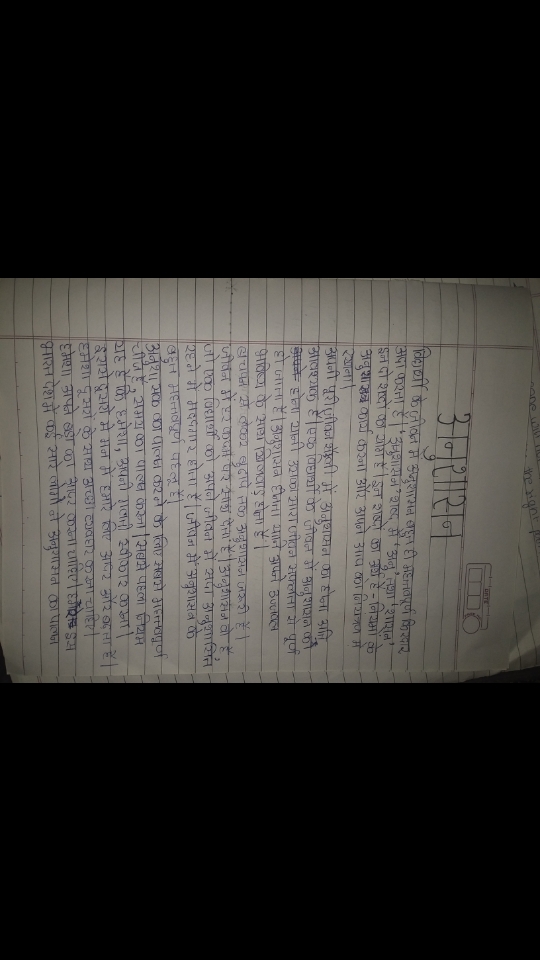 अनुशासन
DATE
विद्यार्थी के जीवन में अनुशासन बहुत ही महत्वपूर्ण किरदार
अदा करता है। 'अनुशासन' शब्द में 'अनु' तथा 'शासन',
इन दो शब्द का जोड़ है। इन शब्द का अर्थ है - नियमों के
अनुसार कार्य करना और अपने आप को नियंत्रण में
रखना।
अपने पूरे जीवन शैली में अनुशासन का होना अति
आवश्यक है। एक विद्यार्थी के जीवन में अनुशासन का
होना यानी उसका सारा जीवन सफलता से पूर्ण
हो जाना है। अनुशासन हीनता यानि अपने उज्ज्वल
भविष्य के साथ खिलवाड़ होना है।
बचपन से लेकर बुढ़ापे तक अनुशासन जरूरी है।
जीवन में हर कदम पर साथ देता है। अनुशासन वो है,
जो एक विद्यार्थी को अपने जीवन में सदा अनुशासित
रहने में मददगार होता है। जीवन में अनुशासन के
बहुत महत्वपूर्ण पहलू है।
अनुशासन का पालन करने के लिए सबसे महत्वपूर्ण
चीज है, समय का पालन करना। सबसे पहला नियम
यह है कि हमेशा, अपनी गलती स्वीकार करना।
दूसरा दूसरों से मन से हमारे लिए आदर और बढ़ता है।
हमेशा दूसरों के साथ अच्छा व्यवहार करना चाहिए।
हमेशा अपने बड़ों का आदर करना चाहिए। इस
भारत देश में कई सारे लोगों ने अनुशासन का पालन